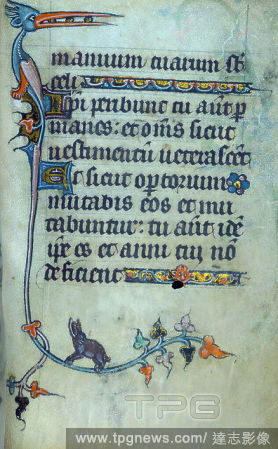 manuum tuarum st̄
celi
Ip̄i peribunt tu aūt p̄
manes: et om̄s sicut
uestimentū ueterascēt
Et sicut op̄torium
mutabis eos et mu
tabuntur: tu aūt idē
ip̄e es et anni tui nō
deficient
TPG
www.tpgnews.com/ 達志影像